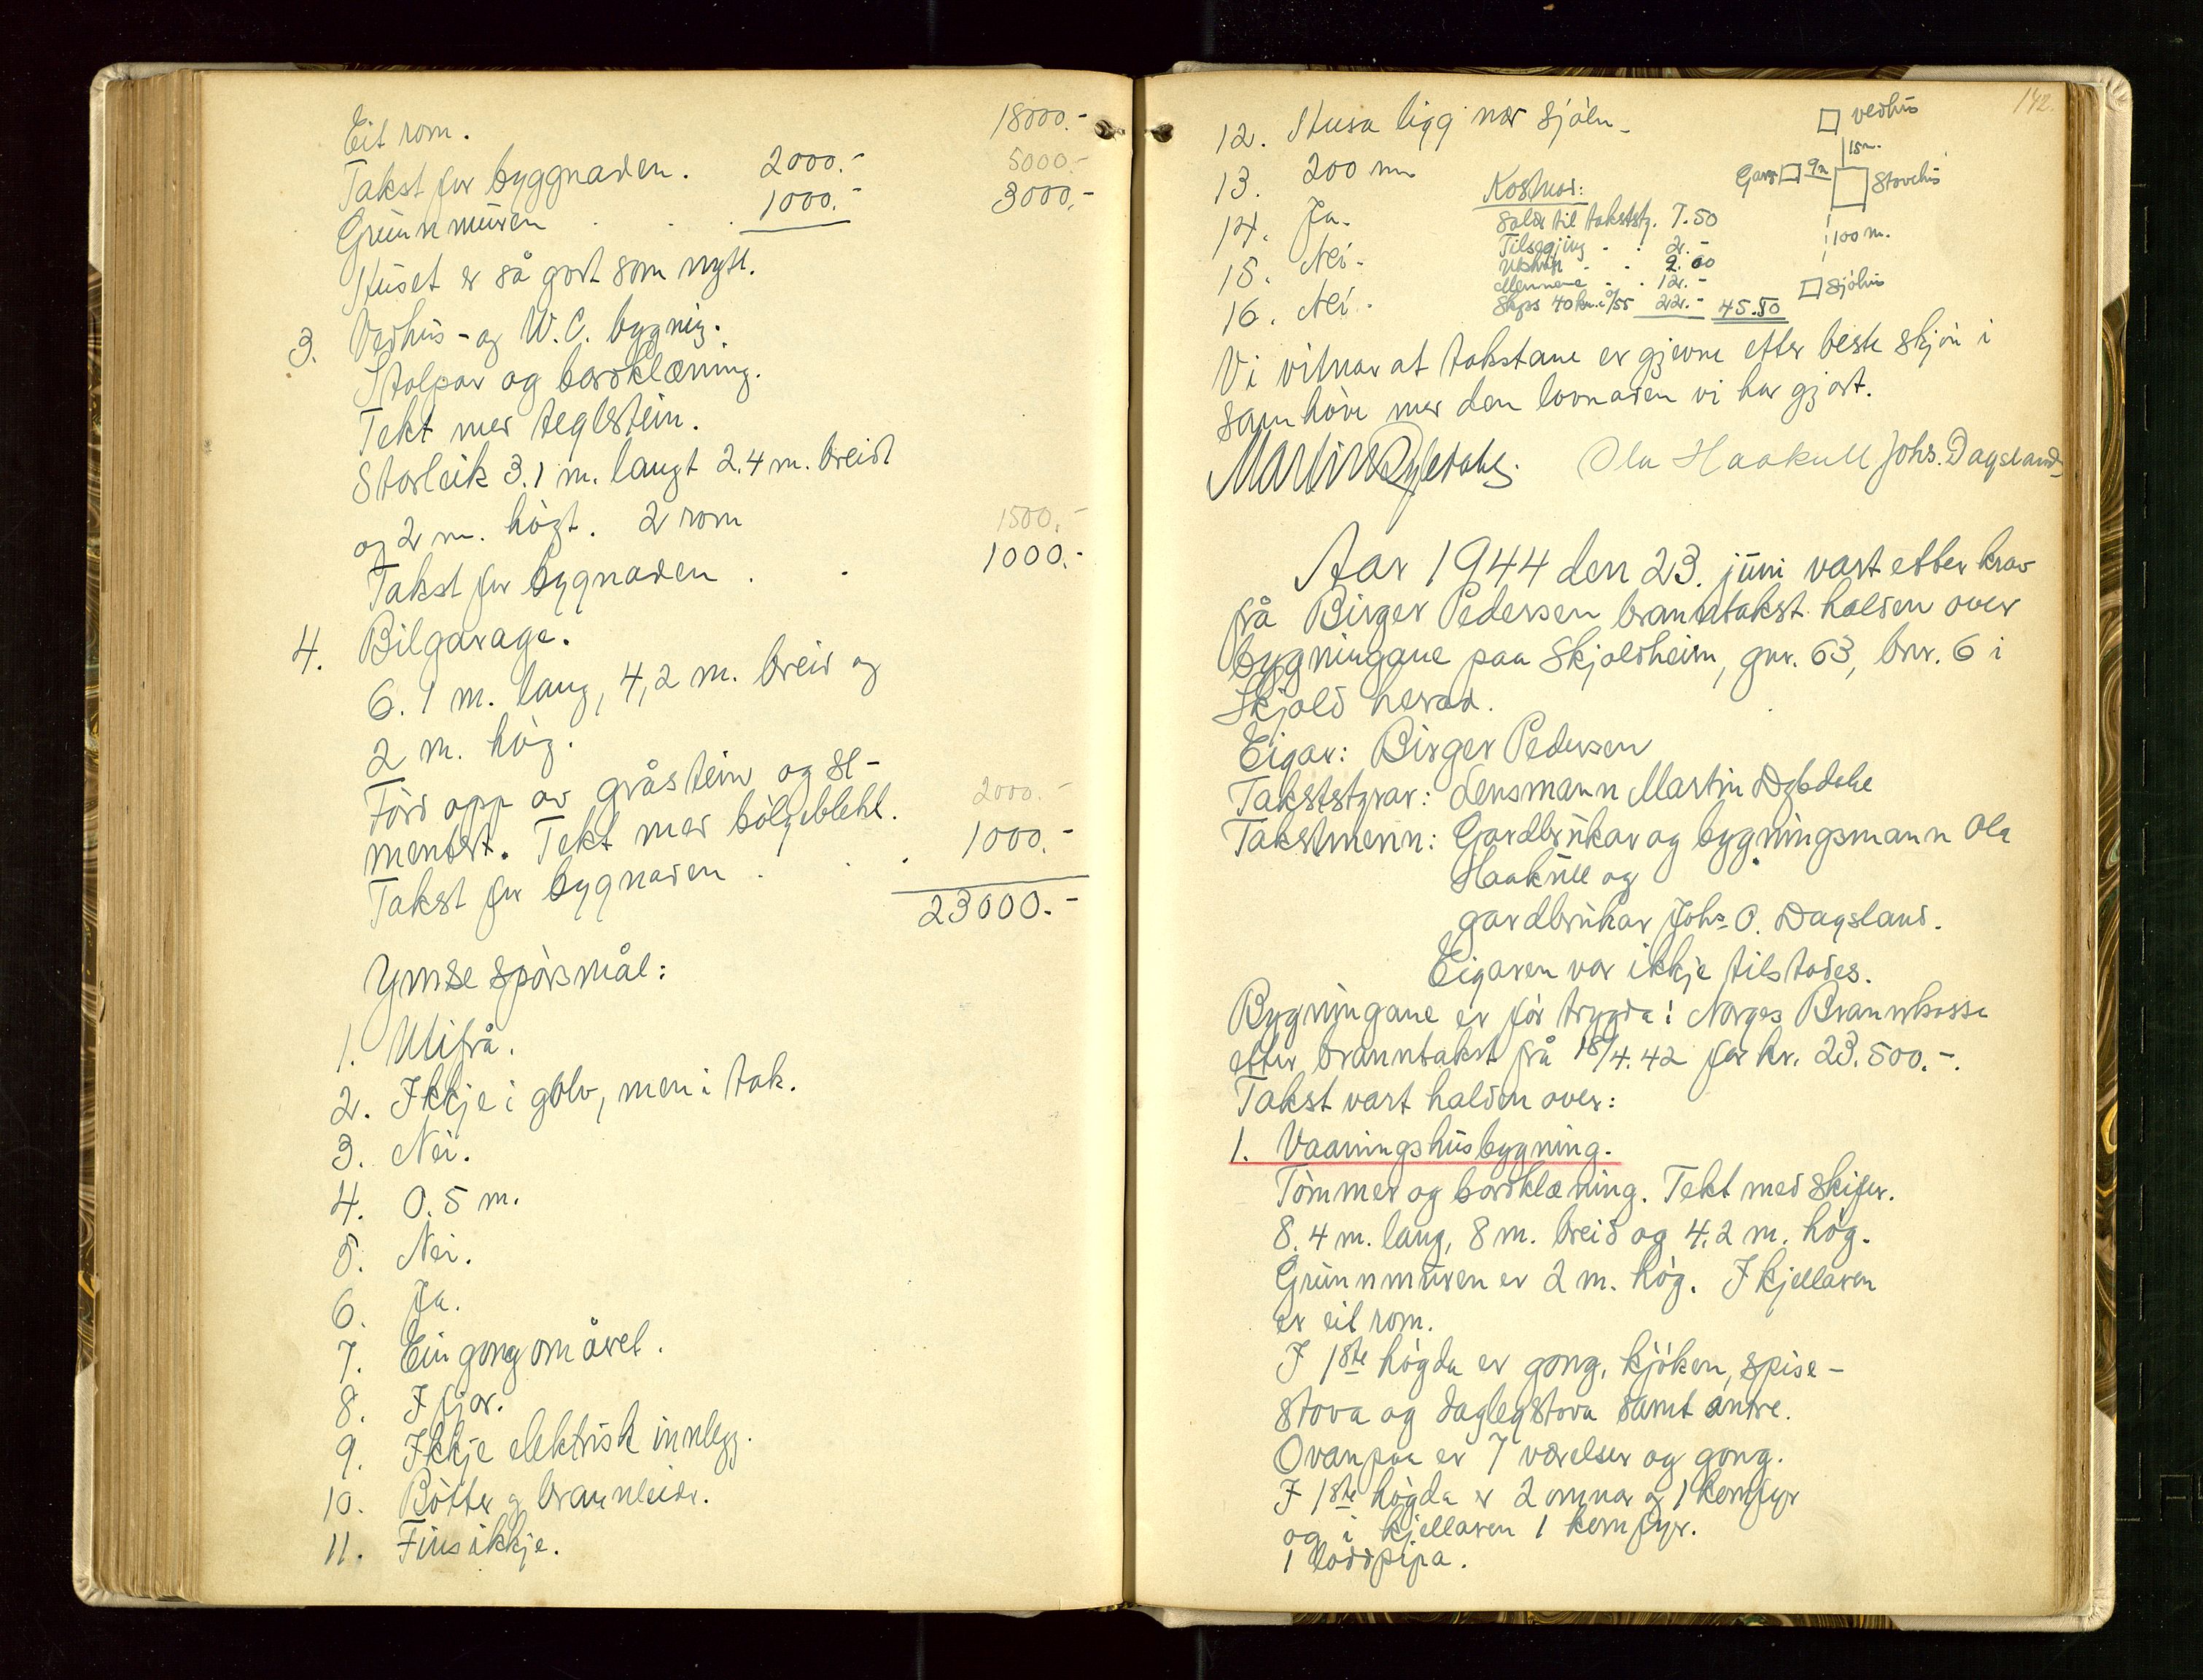 Eit rom. 18000.-
Takst for byggnaden. 2000.- 5000.-
Grunnmuren . . . 1000.- 3000.-
Huset er så godt som nytt.
3. Vedhus- og W.C. bygnig.
Stolpar og bordklæning.
Tekt med teglstein.
Storleik 3.1 m. langt 2.4 m. breidt
og 2 m. högt. 2 rom 1500.-
Takst for bygnaden . . 1000.-
4. Bilgarage.
6.1 m. lang, 4,2 m. breid og
2 m. hög.
Förd opp av gråstein og se-
mentst. Tekt med bölgeblekk. 2000.-
Takst for bygnaden . . . 1000.-
23000.-
Ymse spörsmål:
1. Utifrå.
2. Ikkje i golv, men i tak.
3. Nei.
4. 0.5 m.
5. Nei.
6. Ja.
7. Ein gong om året.
8. I fjor.
9. Ikkje elektrisk innlegg.
10. Bötter og brannleider.
11. Fins ikkje.
142.
12. Husa ligg nær sjöen.
13. 200 m.
14. Ja.
15. Nei.
16. Nei.
Kostnad:
Salær til takststyr. 7.50
Tilsegjing . . 2.-
Utskrift . . 2.00
Mennene . . 12.-
Skyss 40 km. à /55 22.- 45.50
vedhus
15 m.
Gara 9 m Stovehus
100 m.
Sjöhus
Vi vitnar at takstane er gjevne etter beste skjön i
samhöve med den lovnaden vi har gjort.
Martin Dybdahl. Ola Haakull Johs. Dagsland
Aar 1944 den 23. juni vart etter krav
frå Birger Pedersen branntakst halden over
bygningane paa Skjoldheim, gnr. 63, bnr. 6 i
Skjold herad.
Eigar: Birger Pedersen
Takststyrar: Lensmann Martin Dybdahl
Takstmenn: Gardbrukar og bygningsmann Ola
Haakull og
gardbrukar Johs O. Dagsland.
Eigaren var ikkje tilstades.
Bygningane er för trygda i Norges Brannkasse
etter branntakst frå 18/4.42 for kr. 23.500.-.
Takst vart halden over:
1. Vaaningshusbygning.
Tömmer og bordklæning. Tekt med skifer.
8.4 m. lang, 8 m. breid og 4.2 m. hög.
Grunnmuren er 2 m. hög. I kjellaren
er eit rom.
I 1ste högda er gong, kjöken, spise-
stova og daglegstova samt andre.
Ovanpaa er 7 værelser og gong.
I 1ste högda er 2 omnar og 1 komfyr
og i kjellaren 1 komfyr.
1 loddpipa.